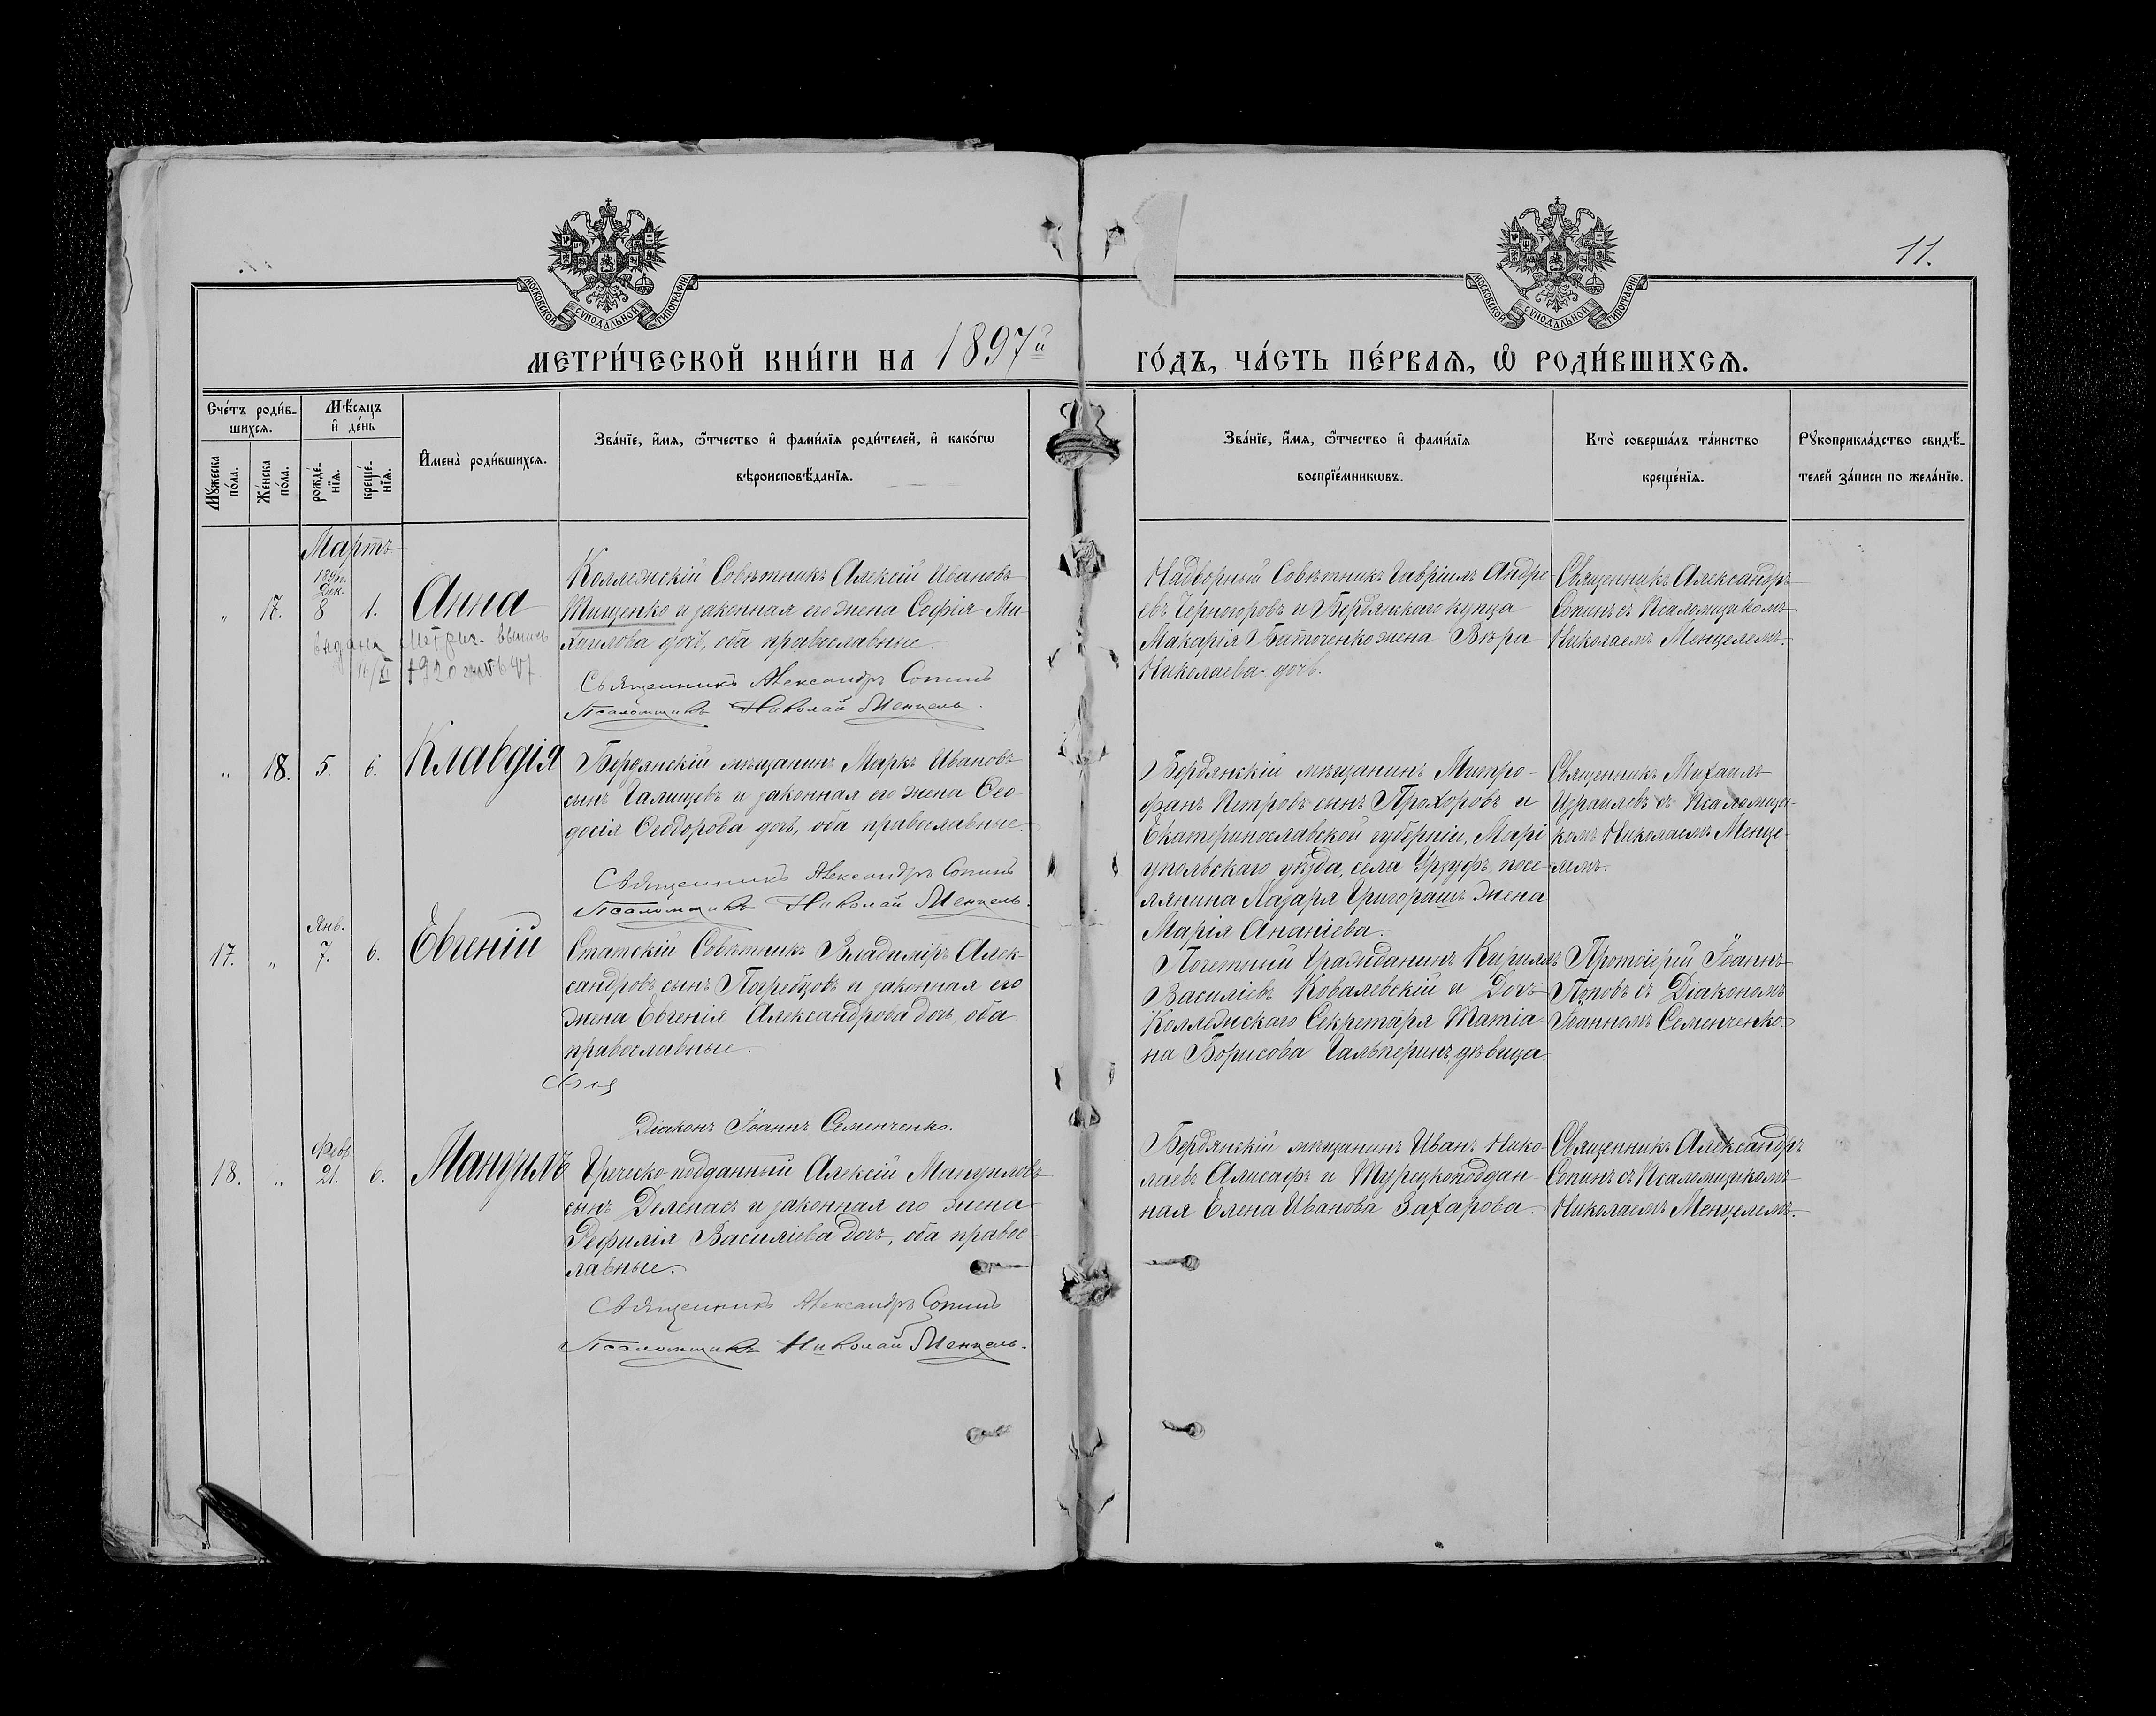 11.
МОСКОВСКОЙ СѴНОДАЛЬНОЙ ТИПОГРАФІИ
МОСКОВСКОЙ СѴНОДАЛЬНОЙ ТИПОГРАФІИ
МЕТРИ́ЧЕСКОЙ КНИ́ГИ НА 1897й ГО́ДЪ, ЧА́СТЬ ПЕ́РВАѦ, Ѡ҆ РОДИ́ВШИХСѦ.
Сче́тъ роди́в-
шихсѧ.
Мꙋ́жеска по́ла.
Же́нска по́ла.
Мѣ́сѧцъ
и҆ де́нь
рожде́-
нїѧ.
креще́-
нїѧ.
И҆мена̀ роди́вшихсѧ.
Зва́нїе, и҆́мѧ, ѻ҆́тчество и҆ фами́лїѧ роди́телей, и҆ како́гѡ
вѣроисповѣ́данїѧ.
Зва́нїе, и҆́мѧ, ѻ҆́тчество и҆ фами́лїѧ
воспрїе́мникѡвъ.
Кто̀ соверша́лъ та́инство
креще́нїѧ.
Рꙋкоприкла́дство свидѣ́-
телей за́писи по жела́нїю.
Мартъ
Дек.
" 17. 8 1. Анна
Коллежскій Совѣтникъ Алексій Ивановъ
Тищенко и законная его жена Софія Ми-
хаилова дочь, оба православные.
Священникъ Александръ Сопинъ
Псаломщикъ Николай Менцель.
выдана Метрич. выпись
10/XI 1920
Надворный Совѣтникъ Гавріилъ Андре-
евъ Черногоровъ и Бердянскаго купца
Макарія Баточенко жена Вѣра
Николаева дочь.
Священникъ Александръ
Сопинъ съ Псаломщикомъ
Николаемъ Менцелемъ.
" 18. 5. 6. Клавдія
Бердянскій мѣщанинъ Маркъ Ивановъ
сынъ Галищевъ и законная его жена Ѳео-
досія Ѳеодорова дочь, оба православные.
Священникъ Александръ Сопинъ
Псаломщикъ Николай Менцель.
Бердянскій мѣщанинъ Митро-
фанъ Петровъ сынъ Прохоровъ и
Екатеринославской губерніи, Марі-
упольскаго уѣзда, села Урзуфъ посе-
лянина Лазаря Григорашъ жена
Марія Ананіева.
Священникъ Михаилъ
Израилевъ съ Псаломщи-
комъ Николаемъ Менце-
лемъ.
Янв.
17. " 7. 6. Евгеній
Статскій Совѣтникъ Владиміръ Алек-
сандровъ сынъ Погребцовъ и законная его
жена Евгенія Александрова дочь, оба
православные.
Діаконъ Іоаннъ Семенченко.
Почетный Гражданинъ Кириллъ
Василіевъ Ковалевскій и Дочь
Коллежскаго Секретаря Татіа-
на Борисова Гальперинъ, дѣвица.
Протоіерей Іоаннъ
Поповъ съ Діакономъ
Іоанномъ Семенченко.
Февр.
18. " 21. 6. Мануилъ
Греческо-подданный Алексій Мануиловъ
сынъ Делепасъ и законная его жена
Василіева дочь, оба правос-
лавные.
Священникъ Александръ Сопинъ
Псаломщикъ Николай Менцель.
Бердянскій мѣщанинъ Иванъ Нико-
лаевъ Алисафъ и Турецкоподдан-
ная Елена Иванова Захарова.
Священникъ Александръ
Сопинъ съ Псаломщикомъ
Николаемъ Менцелемъ.